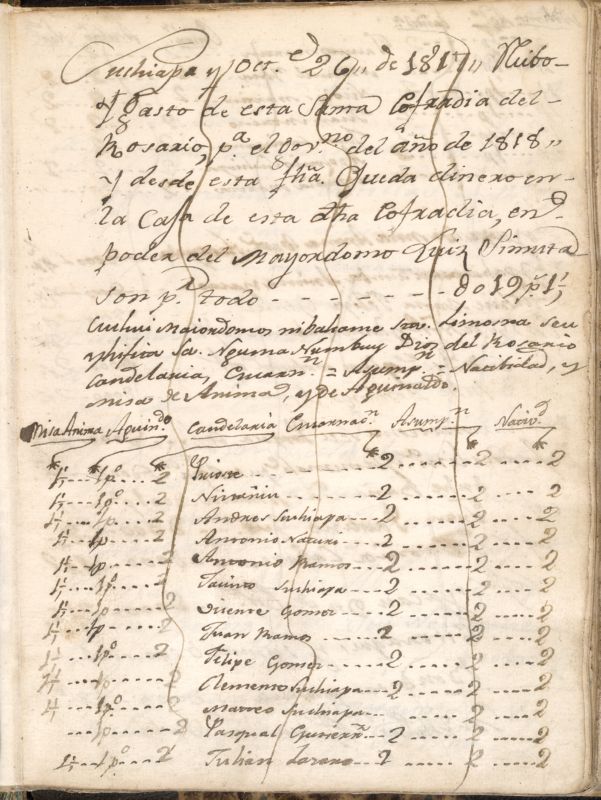 Suchiapa y Oct.e 26,, de 1817,, Resibo
Y gasto de esta Santa Cofradia del
Rosario, p.a el Gov.no del año de 1818,,
Y desde esta fha. Queda dinero en
la Casa de esta dha Cofradia, en
poder del Mayordomo Luiz Simuta
son p.r todo - - - - - - - do 19 p.s 1
Maiordomos nibaliame sta. Limosna seu
Sa. Nguma Numbuy Dios del Rosario
Candelaria, Encarn.n = Asump.n = Natibidad, y
misa de Anima, y de Aguinaldo.
Misa Anima Aguin.do Candelaria Encarnac.n Asump.n Nativ.d
1 .. 1p.o .... 2 Prioste .... 2 ..... 2 .... 2
1 .. 1p.o .... 2 .... 2 ..... 2 .... 2
1 .. 1p. .... 2 Andres Suchiapa .... 2 ..... 2 .... 2
1 .. 1p. .... 2 Antonio .... 2 ..... 2 .... 2
1 .. 1p. .... 2 Antonio Ramos .... 2 ..... 2 .... 2
1 .. 1p.o .... 2 Jacinto Suchiapa .... 2 ..... 2 .... 2
1 .. 1p.o .... 2 Vicente Gomes .... 2 ..... 2 .... 2
1 .. 1p .... 2 Juan Ramos .... 2 ..... 2 .... 2
1 .. 1p.o .... 2 Felipe Gomes .... 2 ..... 2 .... 2
1p. .... 2 Clemente Suchiapa .... 2 ..... 2 .... 2
1p. .... 2 Mateo Suchiapa .... 2 .... 2
1p. .... 2 Pasqual Gutierr.s .... 2 ..... 2 .... 2
1 .. 1p.o .... 2 Julian Lozano .... 2 ..... 2 .... 2